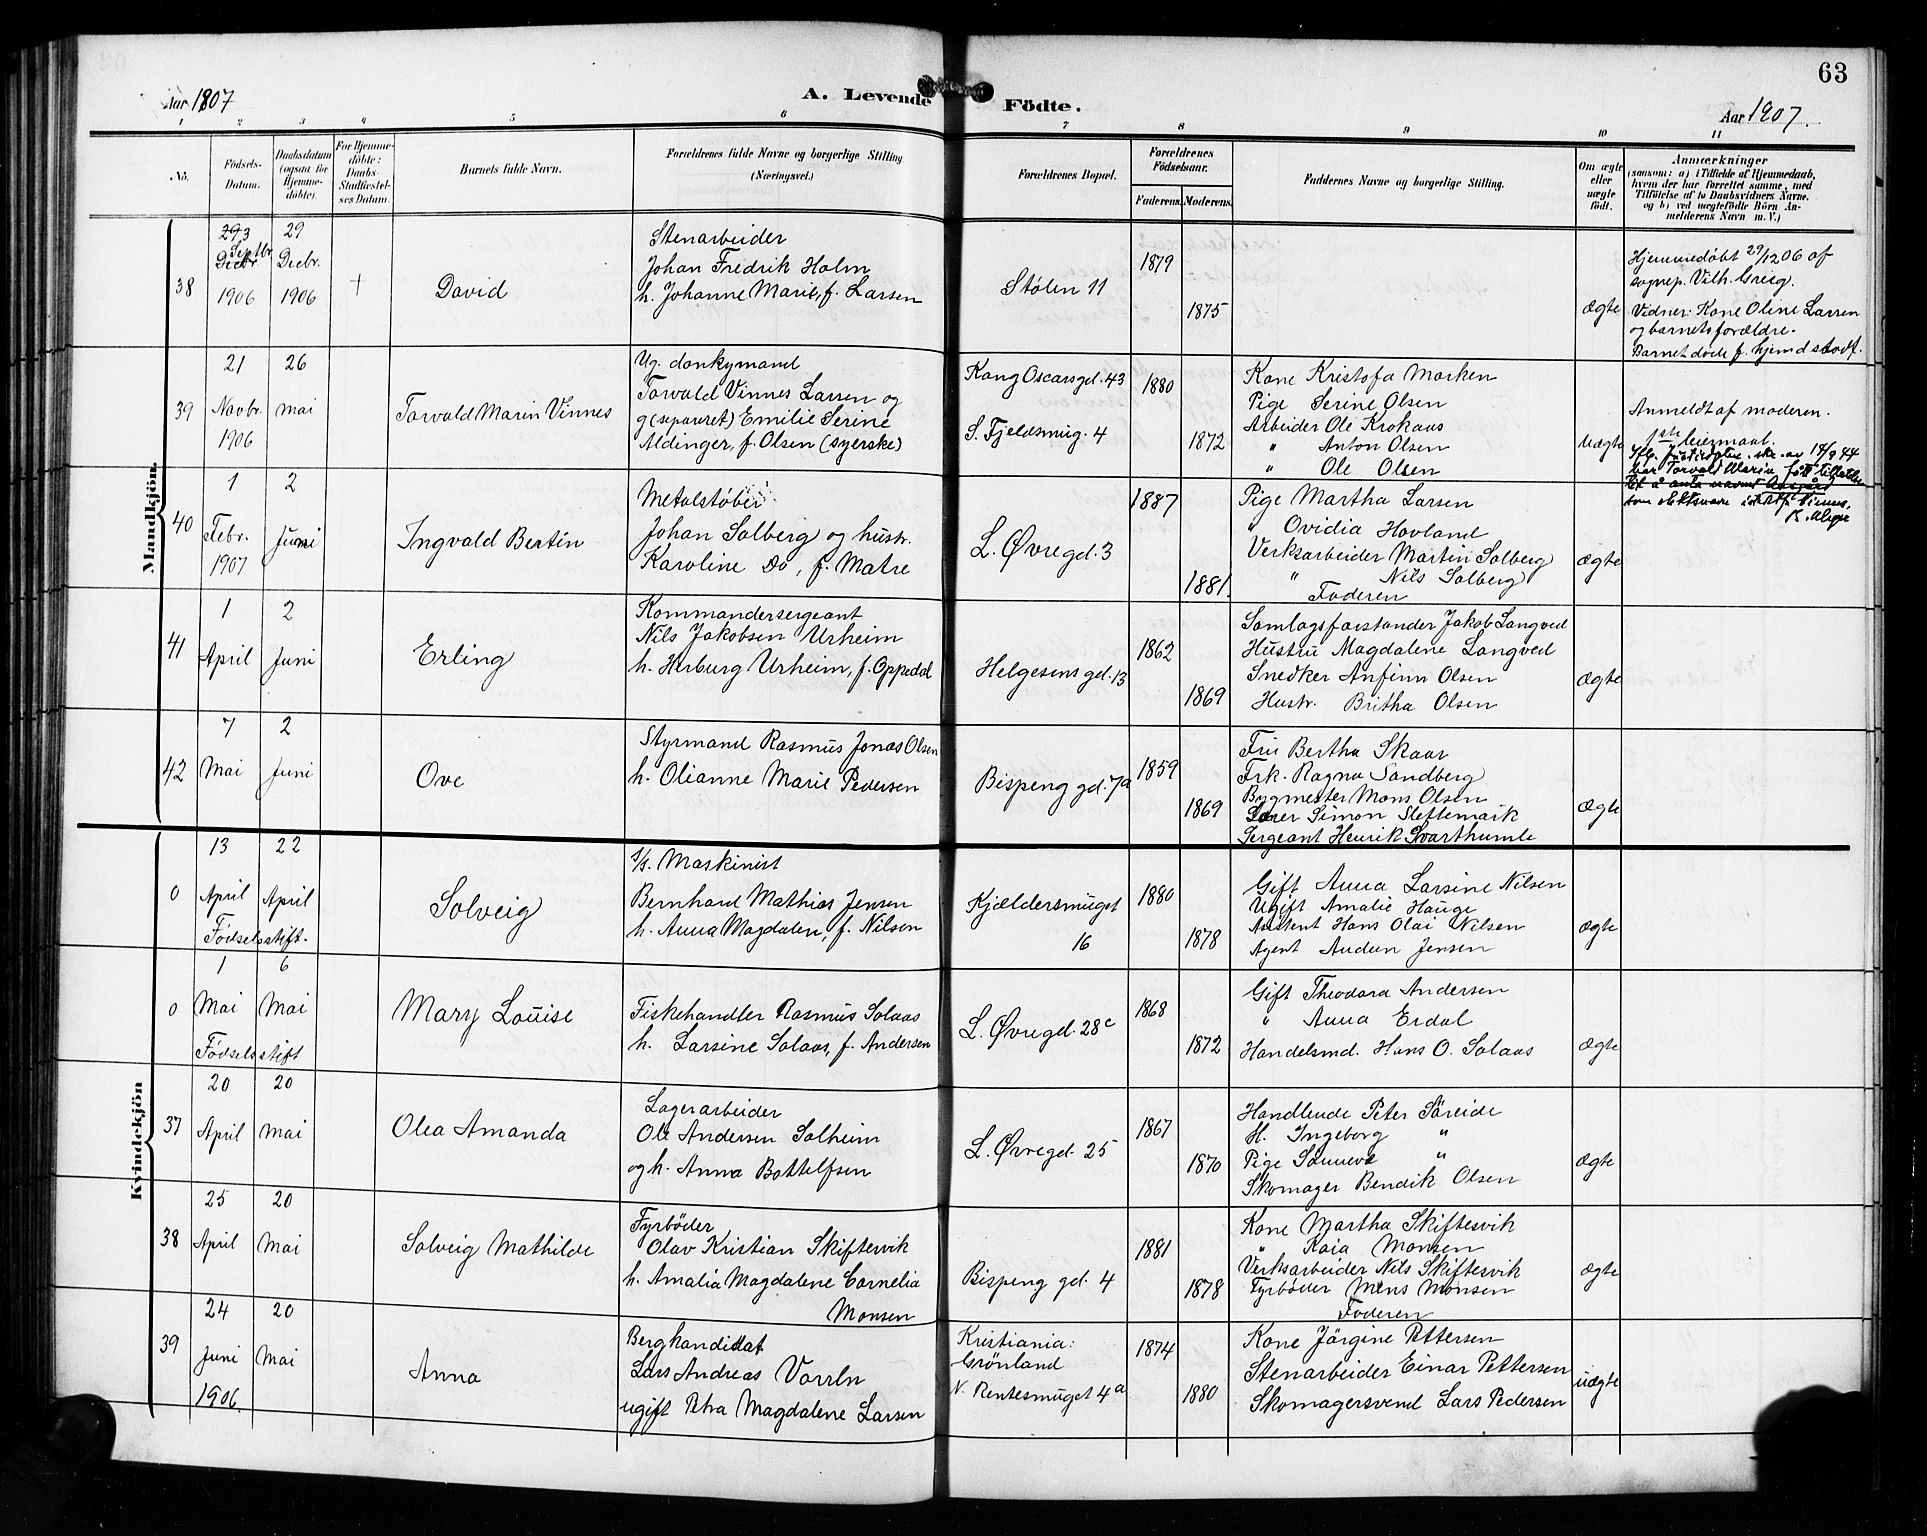 63
Aar 1907
A. Levende Födte.
Aar 1907.
1 2 3 4 5 6 7 8 9 10 11
No.
Födsels-Datum.
Daabsdatum (ogsaa for Hjemmedöbte).
For Hjemmedöbte: Daabs-Stadfæstelses Datum.
Barnets fulde Navn.
Forældrenes fulde Navne og borgerlige Stilling (Næringsvei.)
Forældrenes Bopæl.
Forældrenes Födselsaar.
Faderens. Moderens.
Faddernes Navne og borgerlige Stilling.
Om ægte eller uægte födt.
Anmærkninger
(saasom: a) i Tilfælde af Hjemmedaab, hvem der har forrettet samme, med Tilföielse af to Daabsvidners Navne, og b) ved uægtefödte Börn Anmelderens Navn m. V.)
Mandkjön.
38
3 Septbr. 1906
29 Decbr. 1906
+
David
Stenarbeider
Johan Fredrik Holm
h. Johanne Marie, f. Larsen
Stølen 11
1879
1875
Ægte
Hjemmedøbt 29/12 06 af
sognep. Vilh. Greig.
Vidner: Kone Oline Larsen
og barnets forældre.
Barnet døde f. hjemd. stadf.
39
21 Novbr. 1906
26 Mai
Torvald Marin Vinnes
Ug. donkymand
Torvald Vinnes Larsen og
g (separeret) Emilie Serine
Aldinger, f. Olsen (syerske)
Kong Oscarsgd. 43
S. Fjeldsmug. 4
1880
1872
Kone Kristofa Marken
Pige Serine Olsen
Arbeider Ole Krokaas
" Anton Olsen
" Ole Olsen
Uægte
Anmeldt af moderen.
1ste leiermaal.
40
1 Febr. 1907
2 Juni
Ingvald Bertin
Metalstøber
Johan Solberg og hustr.
Karoline Do, f. Matre
L. Øvregd. 3
1887
1881.
Pige Martha Larsen
" Ovidia Hovland
Verksarbeider Martin Solberg
" Nils Solberg
Faderen
Ægte
41
1 April
2 Juni
Erling
Kommandersergeant
Nils Jakobsen Urheim
h. Herburg Urheim, f. Oppedal
Helgesens gd. 13
1862
1869
Samlagsforstander Jakob Langved
Hustru Magdalene Langved
Snedker Anfinn Olsen
Hustr. Britha Olsen
Ægte
42
7 Mai
2 Juni
Ove
Styrmand Rasmus Jonas Olsen
h. Olianne Marie Pedersen
Bispeng gd. 7a
1859
1869
Fru Bertha Skaar
Frk. Ragna Sandberg
Bygmester Mons Olsen
Simon Slettemark
Sergeant Henrik Svarthumle
Ægte
Kvindekjön
0
13 April
22 April
Fødselsstift.
Solveig
Maskinist
Bernhard Mathias Jensen
h. Anna Magdalen, f. Nilsen
Kjældersmuget
16
1880
1878
Gift Anna Larsine Nilsen
Ugift Amalie Hauge
Assistent Hans Olai Nilsen
Agent Audun Jensen
Ægte
0
1 Mai
6 Mai
Fødselsstift
Mary Louise
Fiskehandler Rasmus Solaas
h. Larsine Solaas, f. Andersen
L. Øvregd. 28c
1868
1872
Gift Theodora Andersen
" Anna Erdal
Handelsmd. Hans O. Solaas
Ægte
37
20 April
20 Mai
Olea Amanda
Lagerarbeider
Ole Andersen Solheim
og h. Anna Bottelfsen
L. Øvregd. 25
1867
1870
Handlende Peter Søreide
H. Ingeborg "
Pige Sanneva "
Skomager Bendik Olsen
Ægte
38
25 April
20 Mai
Solveig Mathilde
Fyrbøder
Olav Kristian Skiftesvik
h. Amalia Magdalene Cornelia
Monsen
Bispeng gd. 4
1881
1878
Kone Martha Skiftesvik
" Kaia Monsen
Verksarbeider Nils Skiftesvik
Fyrbøder Mons Monsen
Faderen
Ægte
39
24 Juni 1906.
20 Mai
Anna
Bergkandidat
Lars Andreas
ugift Petra Magdalene Larsen
Kristiania:
Grønland
N. Rentesmuget 4a
1874
1880
Kone Jørgine Pettersen
Stenarbeider Einar Pettersen
Skomagersvend Lars Pedersen
uægte